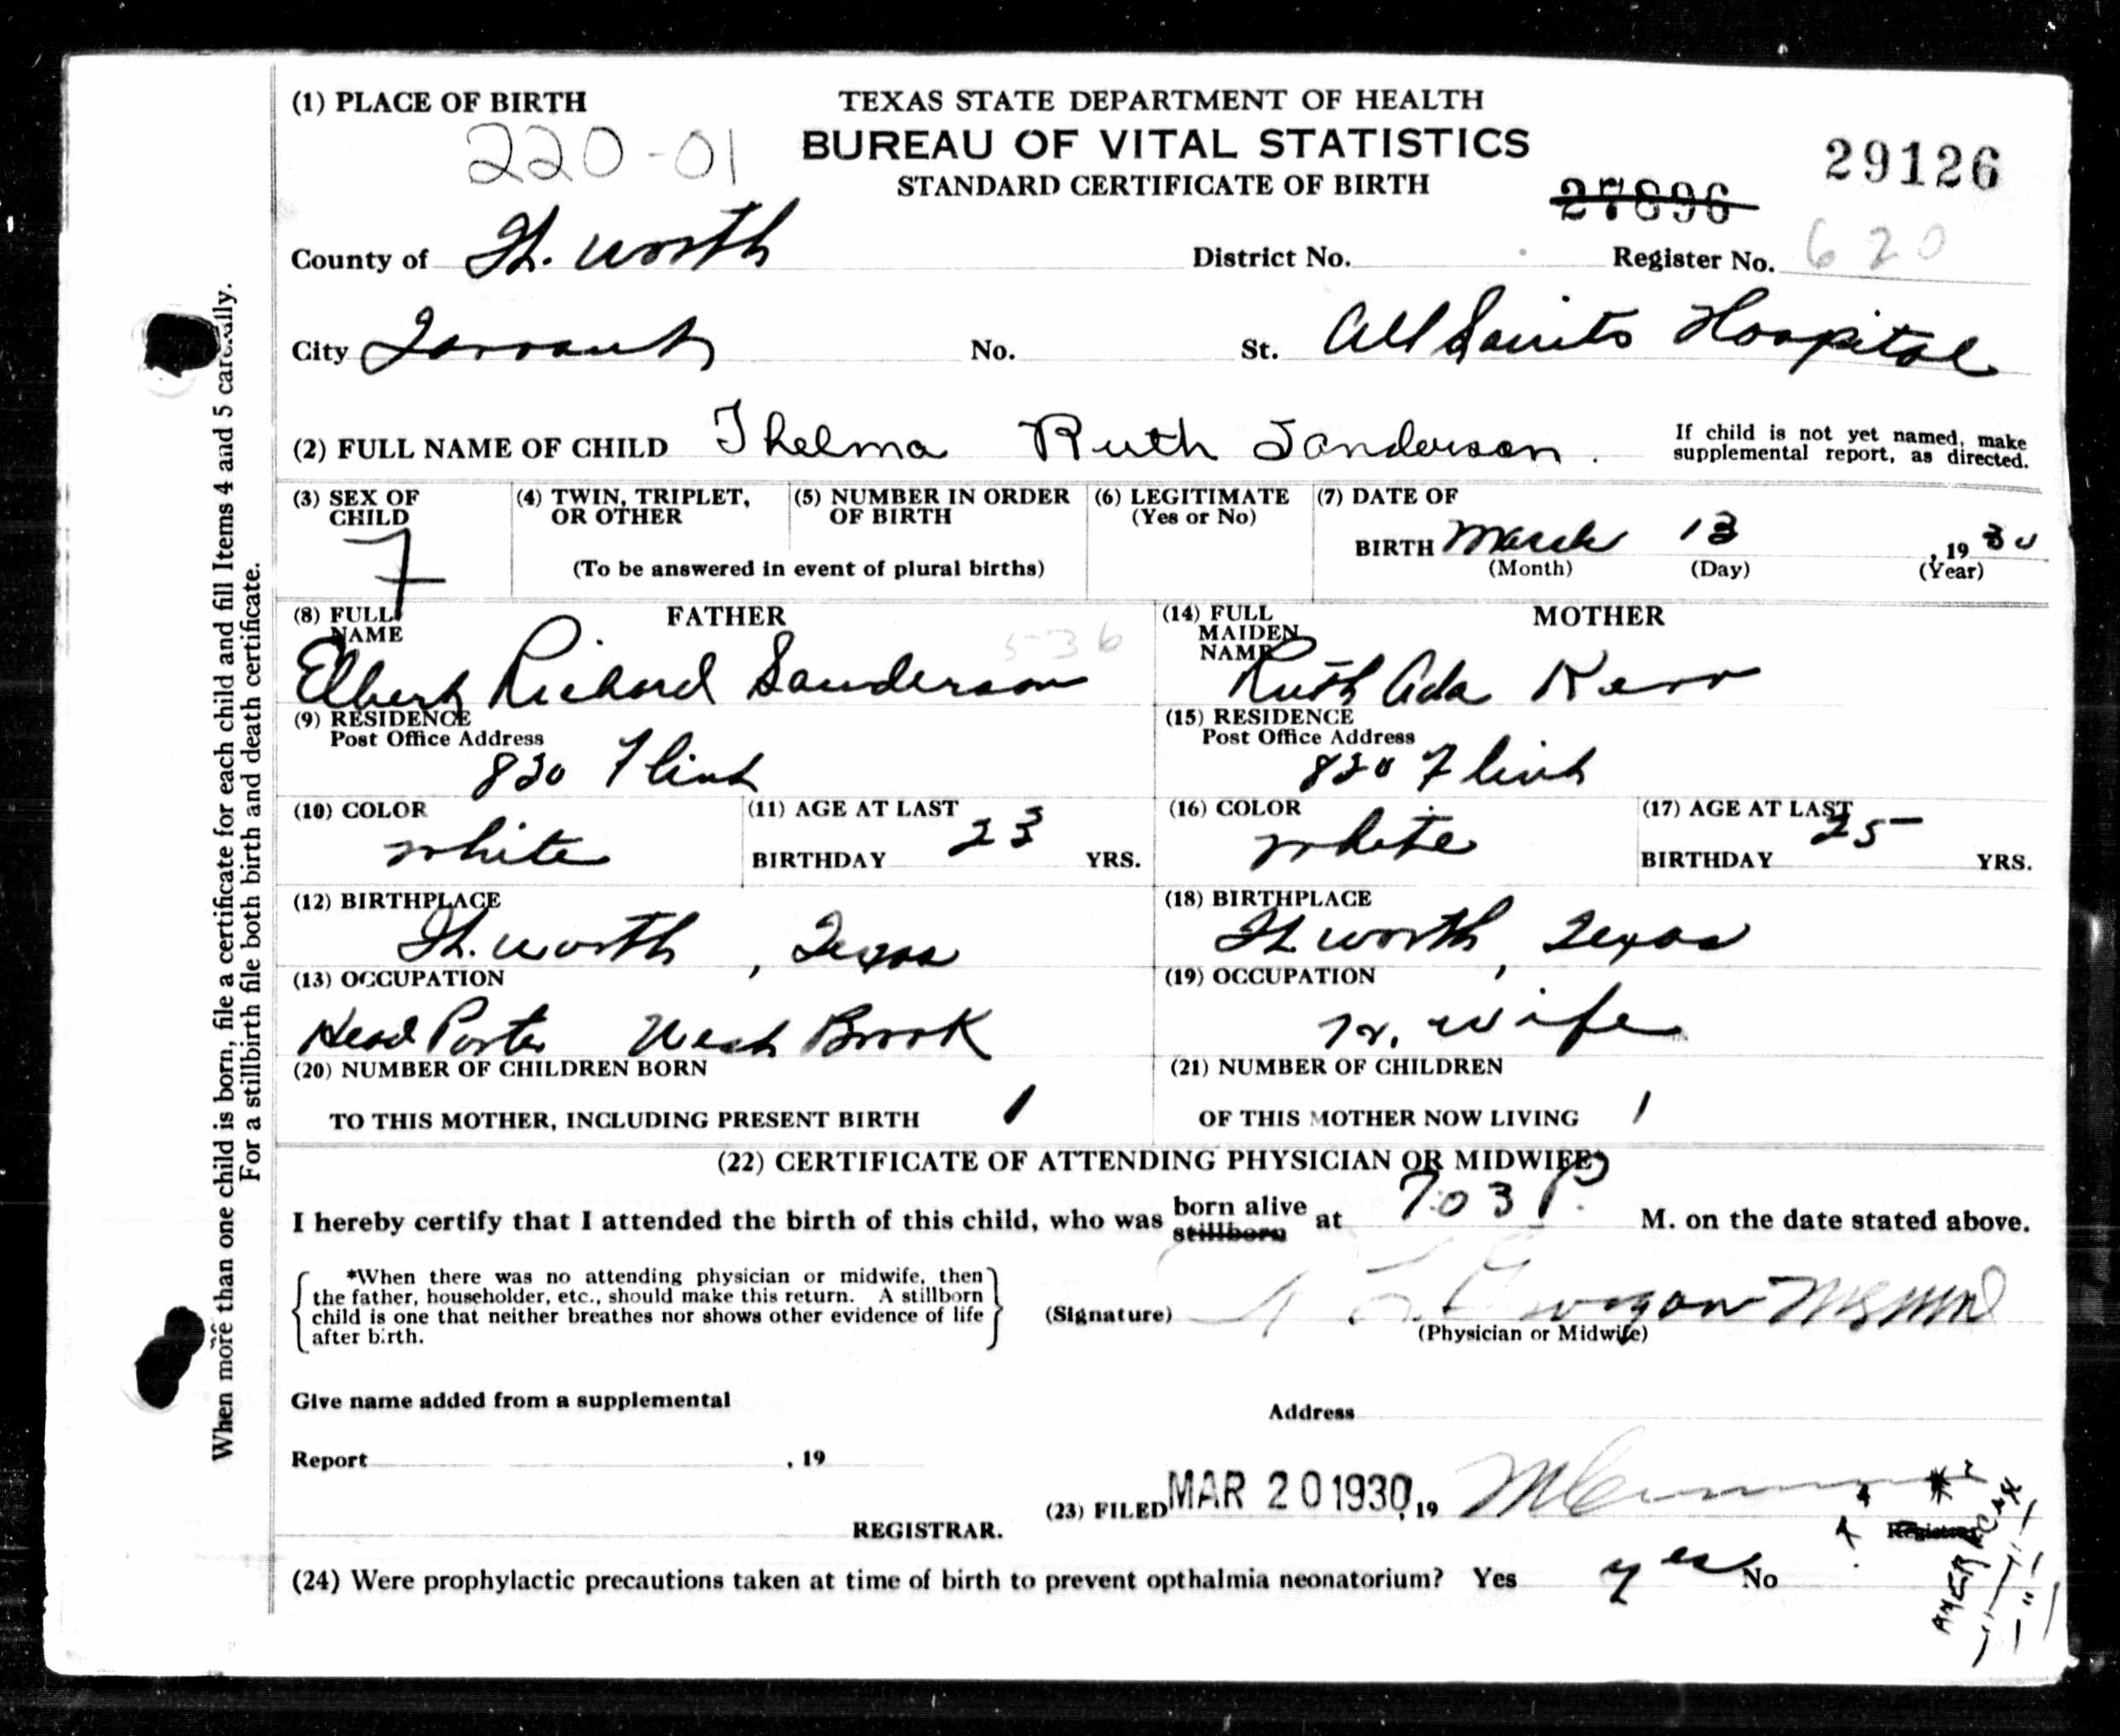 (1) PLACE OF BIRTH
TEXAS STATE DEPARTMENT OF HEALTH
BUREAU OF VITAL STATISTICS
STANDARD CERTIFICATE OF BIRTH
220-01
29126
27896
County of Ft. Worth District No. Register No. 620
City Tarrant No. St. All Saints Hospital
(2) FULL NAME OF CHILD Thelma Ruth Sanderson. If child is not yet named, make supplemental report, as directed.
(3) SEX OF CHILD F
(4) TWIN, TRIPLET, OR OTHER
(5) NUMBER IN ORDER OF BIRTH
(To be answered in event of plural births)
(6) LEGITIMATE (Yes or No)
(7) DATE OF BIRTH March 13, 1930
(Month) (Day) (Year)
(8) FULL NAME FATHER
536
Elbert Richard Sanderson
(9) RESIDENCE
Post Office Address
820 Flint
(10) COLOR white
(11) AGE AT LAST BIRTHDAY 23 YRS.
(12) BIRTHPLACE
Ft. Worth, Texas
(13) OCCUPATION
Head Porter West Brook
(14) FULL MAIDEN NAME MOTHER
Ruth Ada Kerr
(15) RESIDENCE
Post Office Address
820 Flint
(16) COLOR white
(17) AGE AT LAST BIRTHDAY 25 YRS.
(18) BIRTHPLACE
Ft Worth, Texas
(19) OCCUPATION
H. wife
(20) NUMBER OF CHILDREN BORN
TO THIS MOTHER, INCLUDING PRESENT BIRTH 1
(21) NUMBER OF CHILDREN
OF THIS MOTHER NOW LIVING 1
(22) CERTIFICATE OF ATTENDING PHYSICIAN OR MIDWIFE
I hereby certify that I attended the birth of this child, who was born alive stillborn at 7:03 P. M. on the date stated above.
*When there was no attending physician or midwife, then
the father, householder, etc., should make this return. A stillborn
child is one that neither breathes nor shows other evidence of life
after birth.
(Signature)
(Physician or Midwife)
Give name added from a supplemental
Address
Report , 19
(23) FILED MAR 20 1930, 19
REGISTRAR.
Registrar
(24) Were prophylactic precautions taken at time of birth to prevent opthalmia neonatorium? Yes yes No
When more than one child is born, file a certificate for each child and fill Items 4 and 5 carefully.
For a stillbirth file both birth and death certificate.